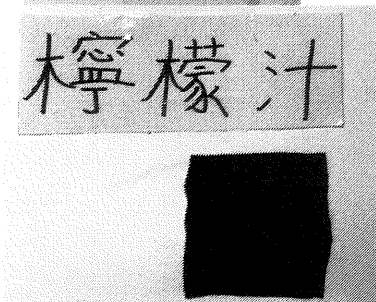 檸檬汁